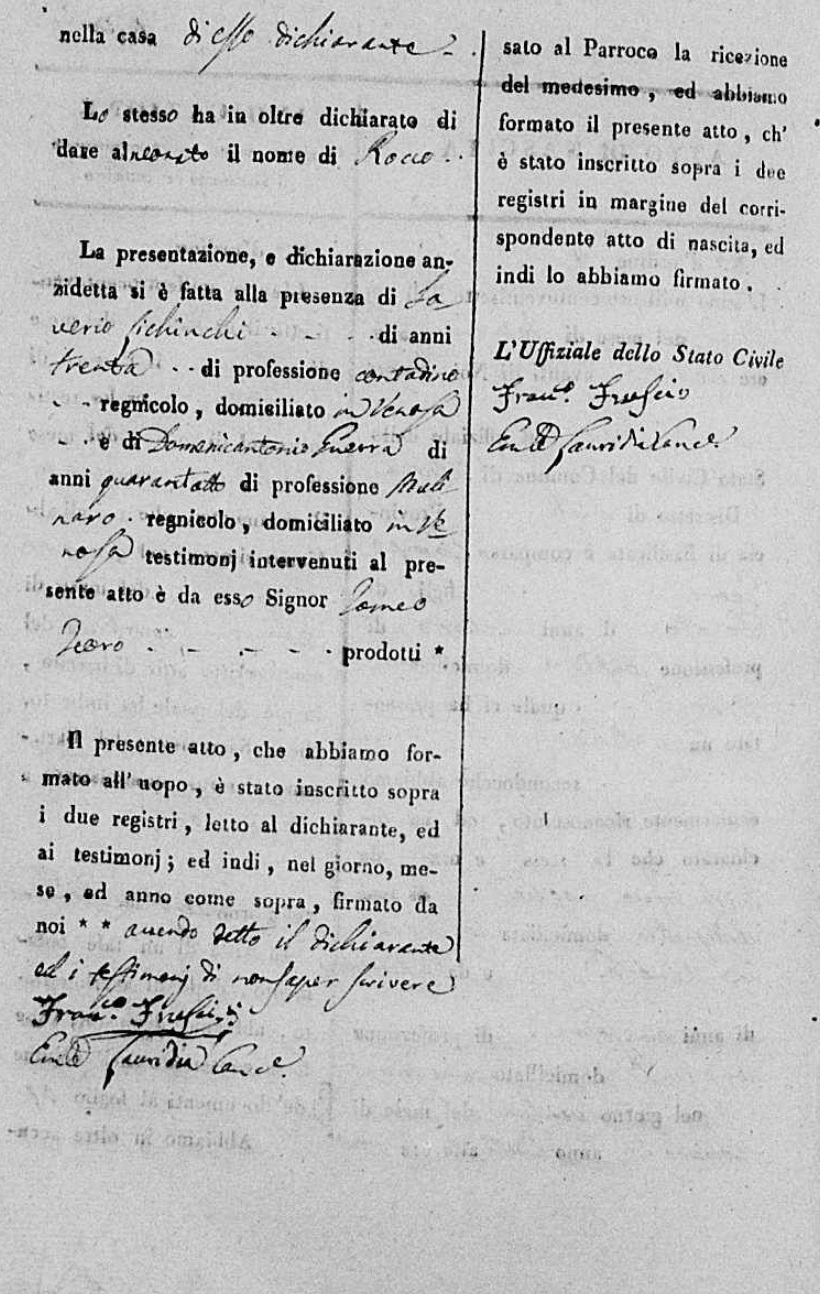 nella casa di esso dichiarante
Lo stesso ha in oltre dichiarato di
dare al neonato il nome di Rocco
La presentazione, e dichiarazione an-
zidetta si è fatta alla presenza di Sa-
verio Sichinchi di anni
trenta di professione contadino
regnicolo, domiciliato in Venosa
e di Domenicantonio Guerra di
anni quarantotto di professione Moli-
naro regnicolo, domiciliato in Ve-
nosa testimonj intervenuti al pre-
sente atto è da esso Signor
prodotti *
Il presente atto, che abbiamo for-
mato all' uopo, è stato inscritto sopra
i due registri, letto al dichiarante, ed
ai testimonj; ed indi, nel giorno, me-
se, ed anno come sopra, firmato da
noi * * avendo detto il dichiarante
ed i testimonj di non saper scrivere
Fran.co
Canc.e
sato al Parroco la ricezione
del medesimo, ed abbiamo
formato il presente atto, ch'
è stato inscritto sopra i due
registri in margine del corri-
spondente atto di nascita, ed
indi lo abbiamo firmato.
L'Uffiziale dello Stato Civile
Fran.co
Canc.e